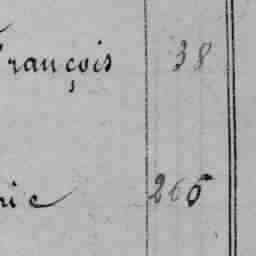 François 38
rie 266